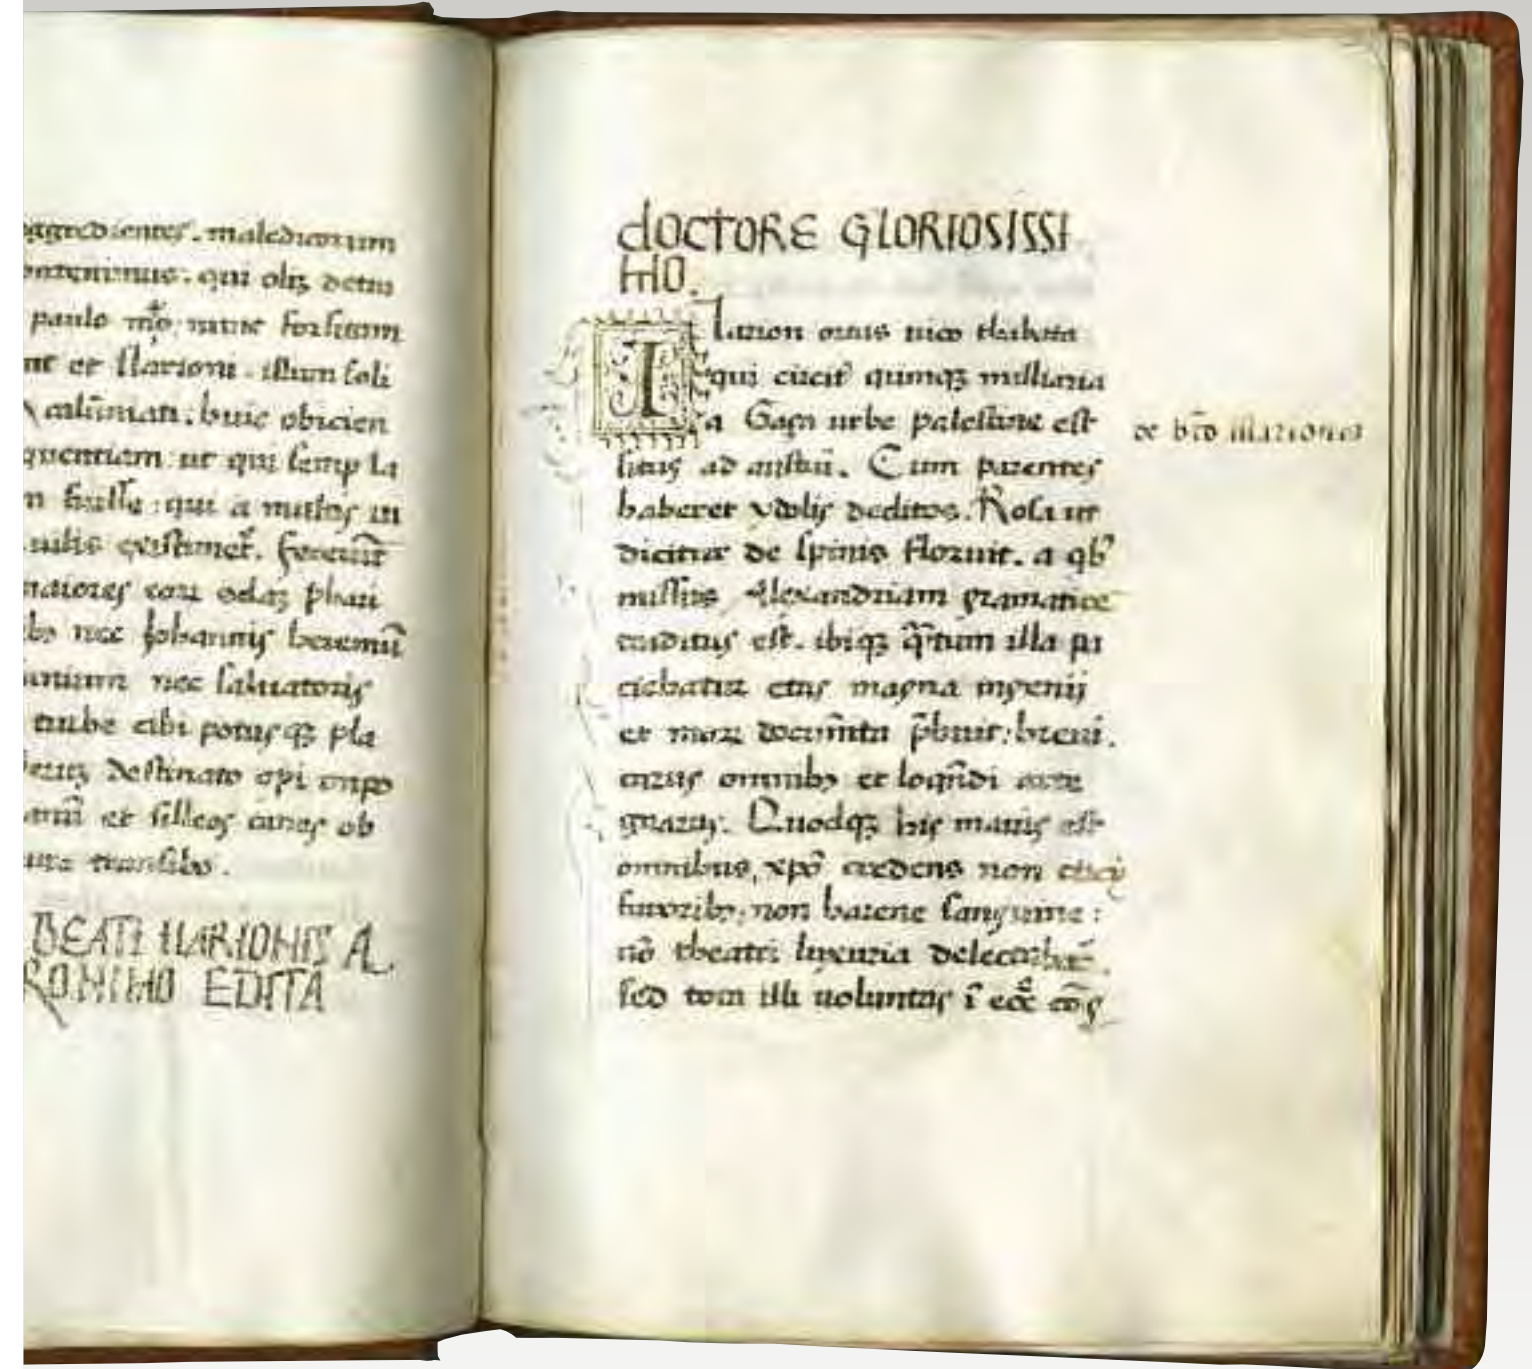 aggredientes. maledicorum
contenimus. qui oliʒ detra
paulo mo nunc forsitam
nt et Ilarioni. illum soli
calūniati. huic obicien
quentiam: ut qui semp la
n fuisse: qui a multis in
uilis existimet. fecerūt
maiores eoꝝ odaʒ phari
nec Iohannis heremū
ieiunium nec saluatoris
turbe cibi potusqʒ pla
destinato opi impo
et silleos canes ob
aure transibo.
BEATI ILARIONIS A
RONIMO EDITA
doCTORE GLORIOSISSI
MO.
Ilarion ortus uico thabata
qui circit̉ qumqʒ milliaria
a Gaça urbe palestine est
situs ad austrū. Cum parentes
haberet ydolis deditos. Rosa ut
dicitur de spinis floruit. a qb̉
missus Alexandriam gramatice
eruditus est. ibiqʒ q̄ntum illa pa
ciebatur etas magna ingenii
et moꝝ documīta p̄buit: breui.
carus omnibꝫ et loqn̄di arte
gnarus. Quodqʒ his maius est
omnibus, xpō credens non circi
furoribꝫ: non harene sanguine:
nō theatri luxuria delectabat̄.
sed tota illi uoluntas ī ecc̄ē
de bt̄o illarione